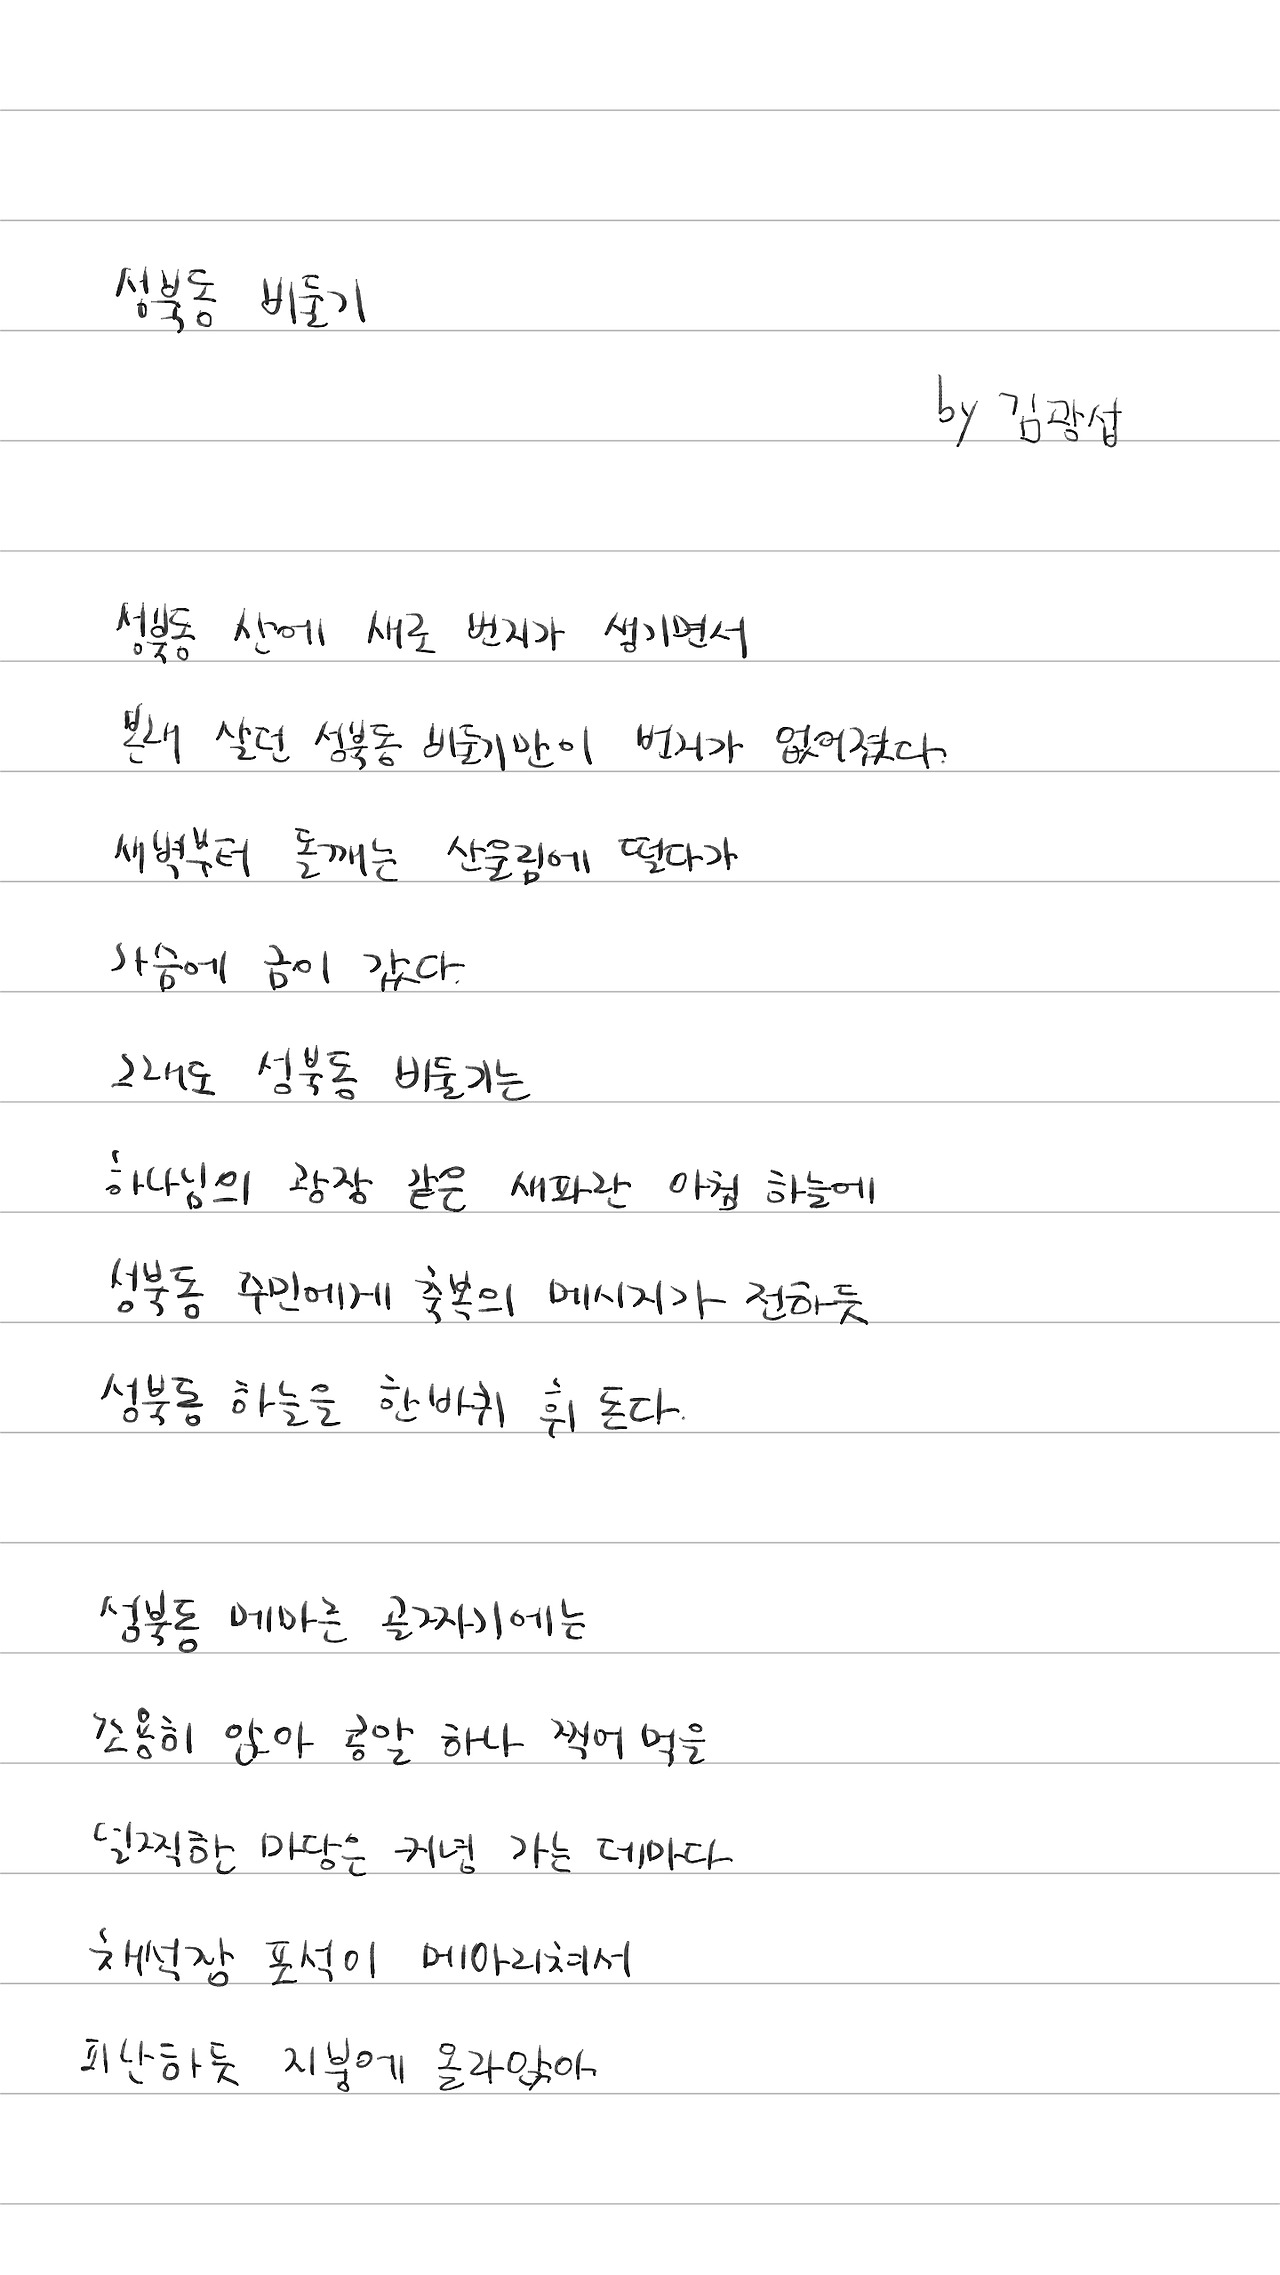 성북동 비둘기
by 김광섭
성북동 산에 새로 번지가 생기면서
본래 살던 성북동 비둘기만이 번지가 없어졌다.
새벽부터 돌깨는 산울림에 떨다가
가슴에 금이 갔다.
그래도 성북동 비둘기는
하나님의 광장 같은 새파란 아침 하늘에
성북동 주민에게 축복의 메시지가 전하듯
성북동 하늘을 한바퀴 휘 돈다.
성북동 메마른 골짜기에는
조용히 앉아 콩알 하나 찍어 먹을
널찍한 마당은 커녕 가는 데마다
채석장 포성이 메아리쳐서
피난하듯 지붕에 올라앉아